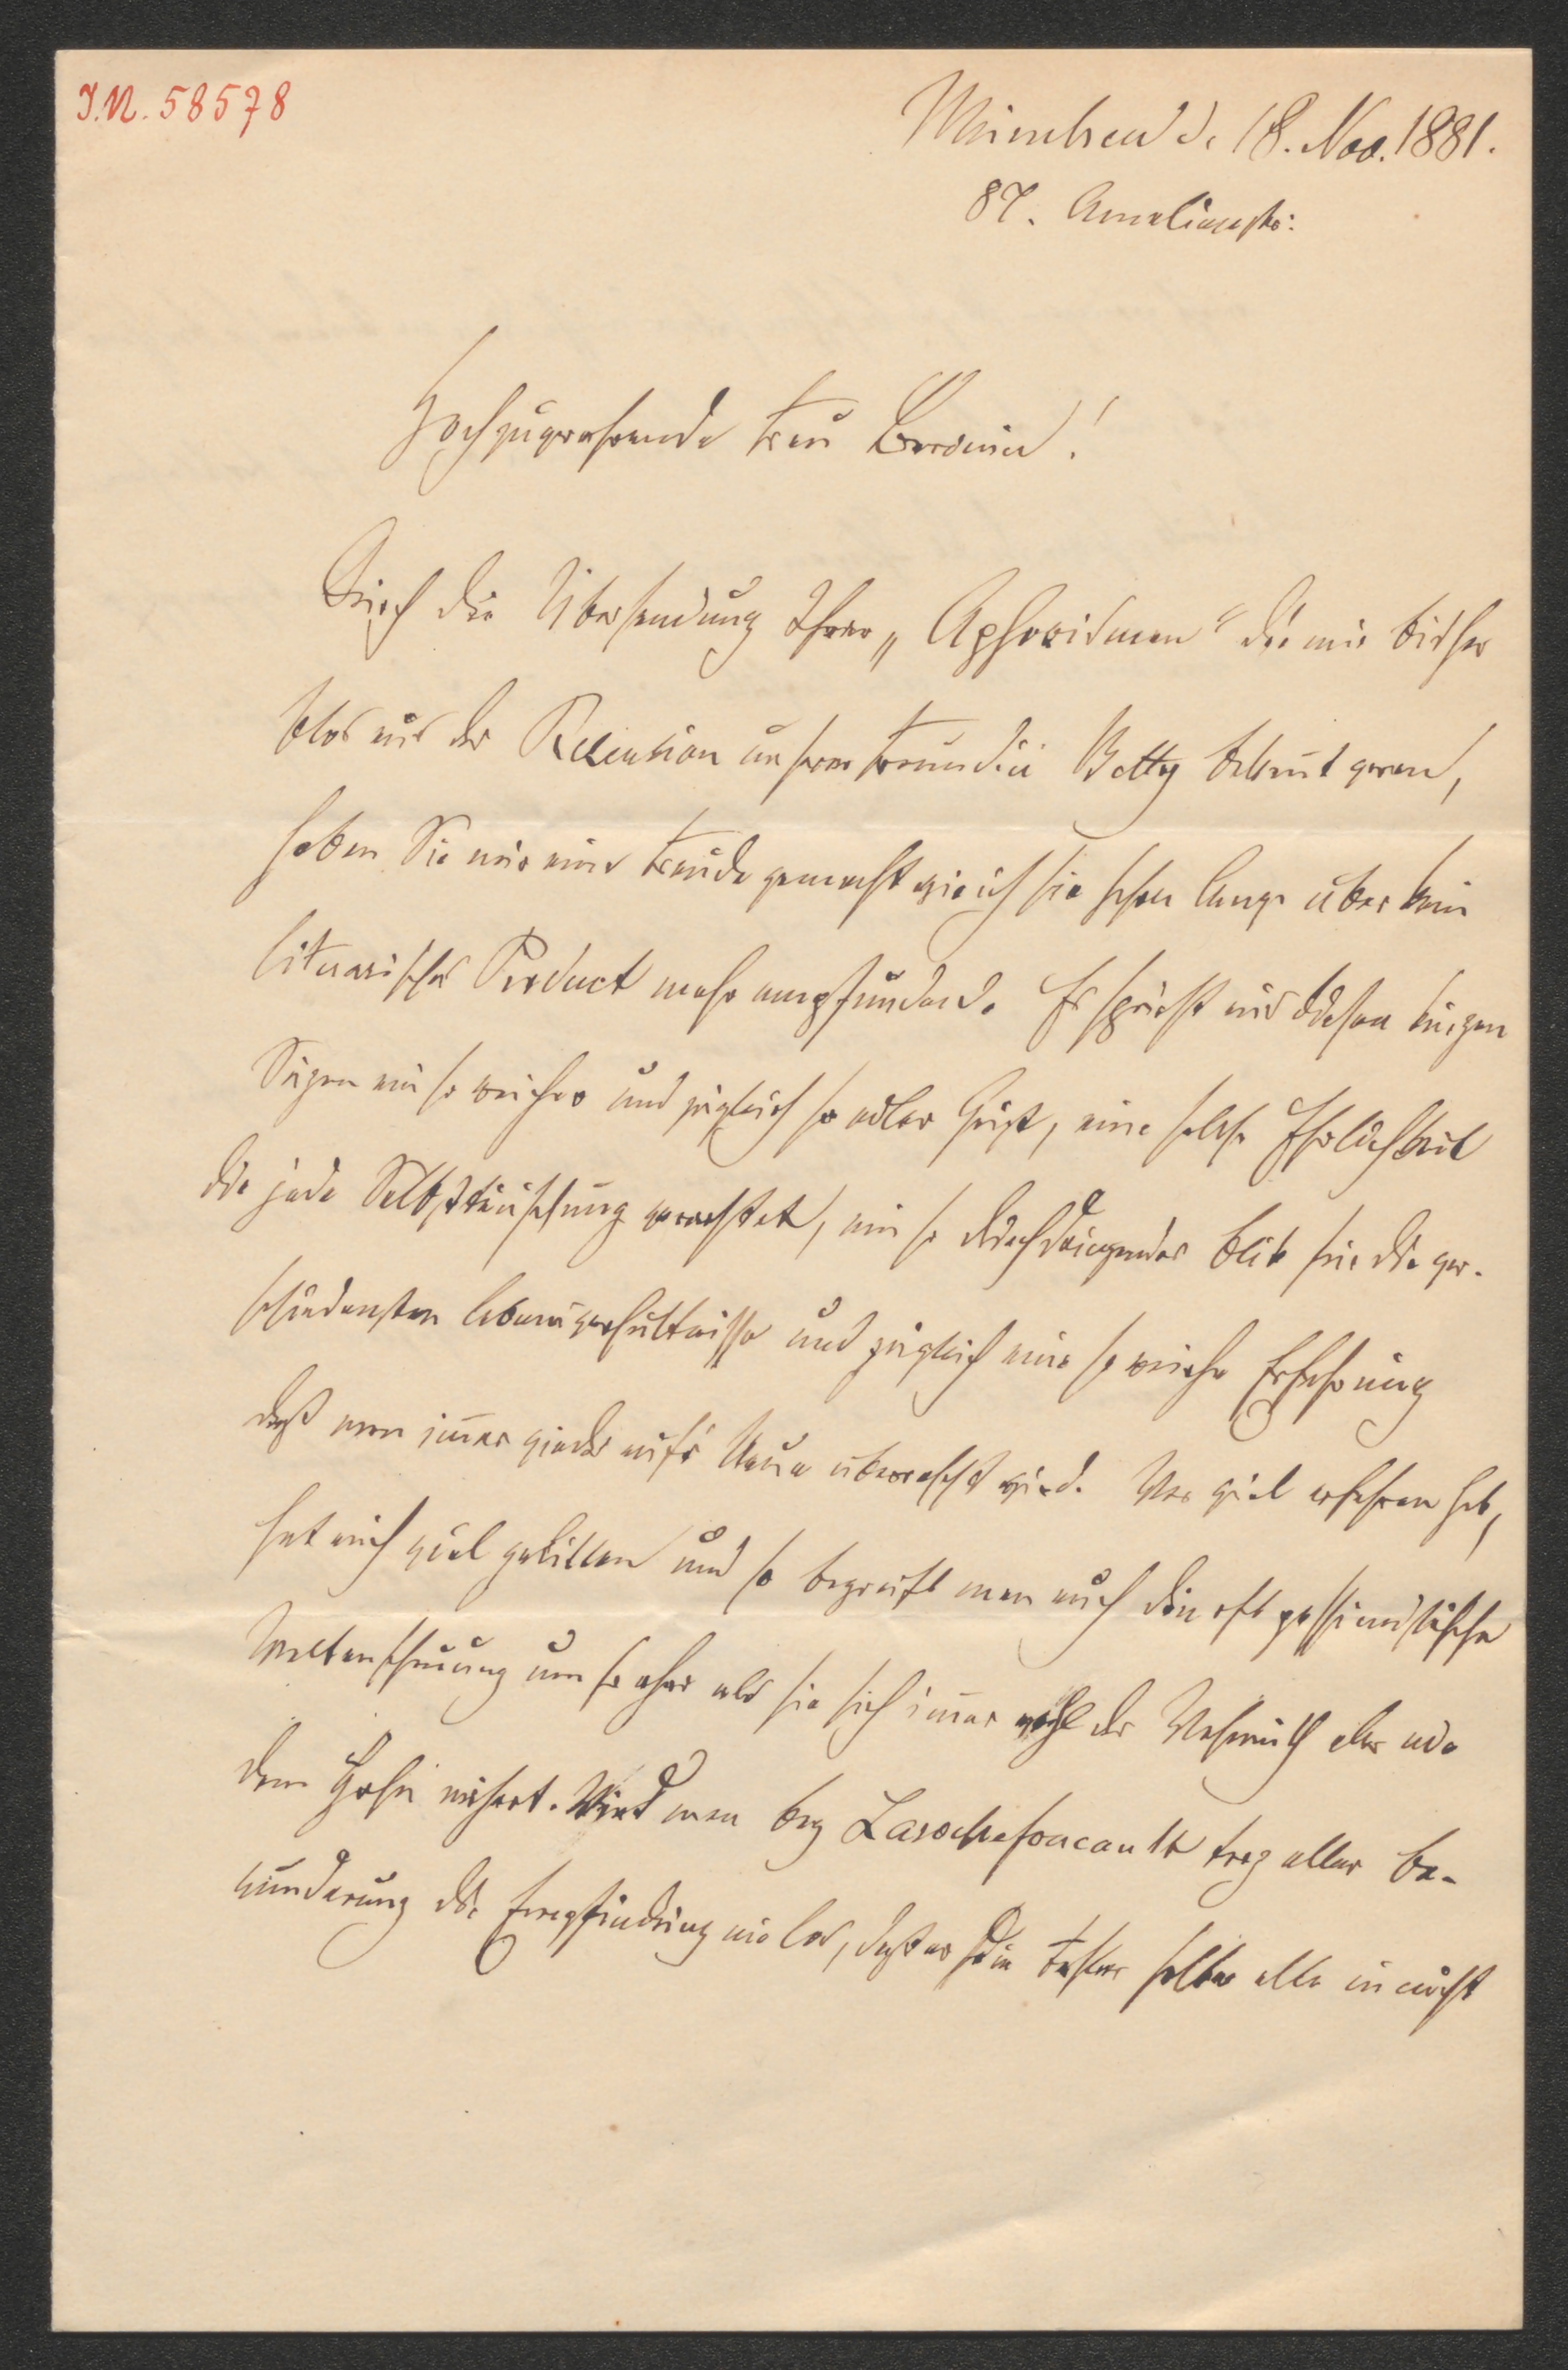 I.N. 58578
München d. 18. Nov. 1881.
87. Amalienstr:
Hochzuverehrende Frau Baronin!
Durch die Übersendung Ihrer „Aphorismen“ die mir bisher
blos aus der Recension unserer Freundin Betty bekannt waren,
haben Sie mir eine Freude gemacht wie ich sie schon lange über kein
literarisches Product mehr empfunden. Es spricht aus diesen kurzen
Säzen ein so reicher und zugleich so edler Geist, eine solche Ehrlichkeit
die jede Selbsttäuschung verachtet, ein so durchdringender Blik für die ver-
schiedensten Lebensverhältnisse und zugleich eine so reiche Erfahrung
daß man immer wieder auf's Neue überrascht wird. Wer viel erfahren hat,
hat auch viel gelitten und so begreift man auch die oft pessimistische
Weltanschauung um so eher als sie sich immer mehr der Wehmuth als
dem Hohn nähert. Wird man bey Larochefoucault troz aller Be-
wunderung die Empfindung nie los, daß er die Fehler selber alle in nicht